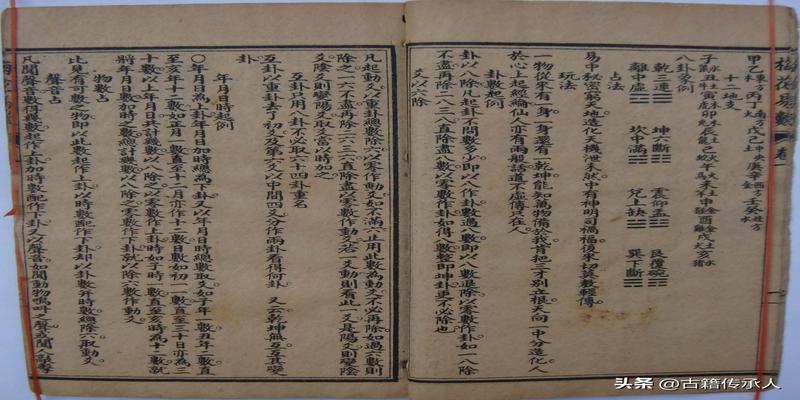 甲乙東方 丙丁南方 戊己中央 庚辛西方 壬癸北方
十二地支
八卦象例
乾三連☰ 坤六斷☷ 震仰盂☳ 艮覆碗☶
離中虛☲ 坎中滿☵ 兌上缺☱ 巽下斷☴
占法
易中秘密窮天地造化天機泄未然中有神明司禍福後來切莫教輕傳
玩法
一物從來有一身一身還有一乾坤能知萬物備於我肯把三才別立根天向一中分造化人
於心上起經綸仙人亦有兩般話道不虛傳只在人
卦數起例
卦以八除凡起卦不問數多少即以八作卦數過八數即以八數退除以零數作卦如一八除
不盡再除二八三八直除盡八數以零數作卦如得八數整即坤卦更不必除也
爻以六除
凡起動爻以重卦總數除六以零作動爻如不滿六止用此數為動爻不必再除如過六數則
除之一六不盡再除二六三六直除盡以零數作動爻若一爻動則看此一爻是陽爻則變陰
爻陰爻則變陽爻取爻當以時加之
互卦只用八卦不必取六十四卦重名
互卦以重卦去了初爻及第六爻以中間四爻分作兩卦看得何卦 又云乾坤無互互其變
卦
年月日時起例
年月日為上卦年月日加時總為下卦又以年月日時總數取爻如子年一數丑年二數直
至亥年十二數月如正月一數直至十二月亦作十二數日數如初一一數直至三十日亦為三
十數以上年月日共計幾數以八除之以零數作上卦時如子時一數直至亥時為十二數就
將年月日數加時之數總計幾數以八除之零數作下卦就以除六數作動爻
物數占
此見有可數之物即以此數起作上卦以時數配作下卦卻以卦數并時數總除六取動爻
聲音占
凡聞聲音數得幾數起作上卦加時數配作下卦又以聲音如聞動物鳴叫之聲或聞人擊
頭條 @古籍传承人